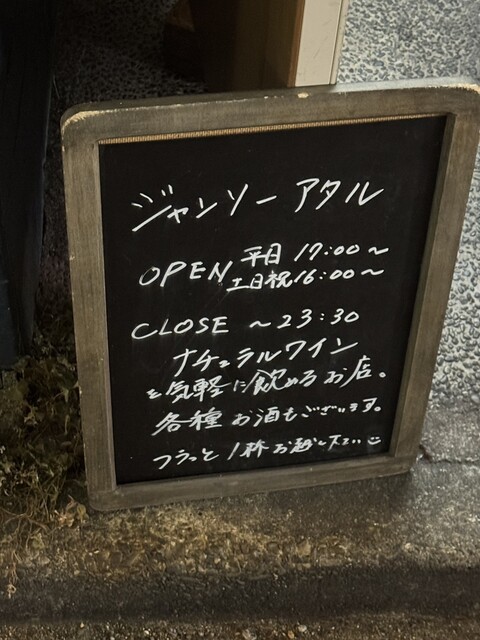 ジャンソー アタル
OPEN 平日 17:00〜
土日祝 16:00〜
CLOSE 〜23:30
ナチュラルワイン
を気軽に飲めるお店。
各種お酒もございます。
フラっと1杯お越し下さい